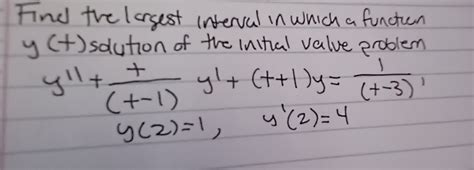 Find the largest interval in which a function
y(t) solution of the initial value problem
y'' + t/(t-1) y' + (t+1)y = 1/(t-3),
y(2)=1, y'(2)=4